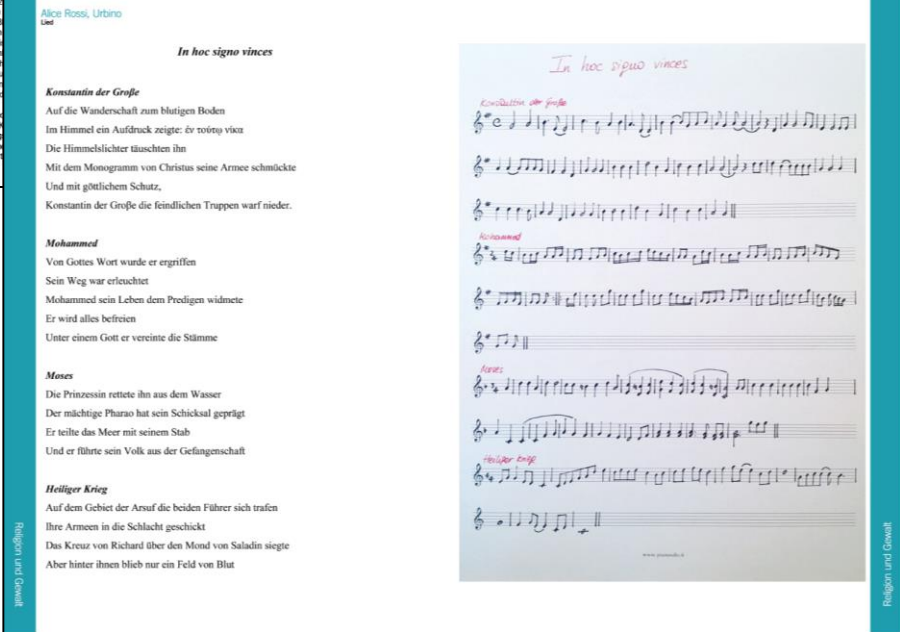 Alice Rossi, Urbino
Lied
In hoc signo vinces
Konstantin der Große
Auf die Wanderschaft zum blutigen Boden
Im Himmel ein Aufdruck zeigte: ἐν τούτῳ νίκα
Die Himmelslichter täuschten ihn
Mit dem Monogramm von Christus seine Armee schmückte
Und mit göttlichem Schutz,
Konstantin der Große die feindlichen Truppen warf nieder.
Mohammed
Von Gottes Wort wurde er ergriffen
Sein Weg war erleuchtet
Mohammed sein Leben dem Predigen widmete
Er wird alles befreien
Unter einem Gott er vereinte die Stämme
Moses
Die Prinzessin rettete ihn aus dem Wasser
Der mächtige Pharao hat sein Schicksal geprägt
Er teilte das Meer mit seinem Stab
Und er führte sein Volk aus der Gefangenschaft
Heiliger Krieg
Auf dem Gebiet der Arsuf die beiden Führer sich trafen
Ihre Armeen in die Schlacht geschickt
Das Kreuz von Richard über den Mond von Saladin siegte
Aber hinter ihnen blieb nur ein Feld von Blut
In hoc signo vinces
Konstantin der Große
Mohammed
Moses
Heiliger Krieg
Religion und Gewalt
Religion und Gewalt